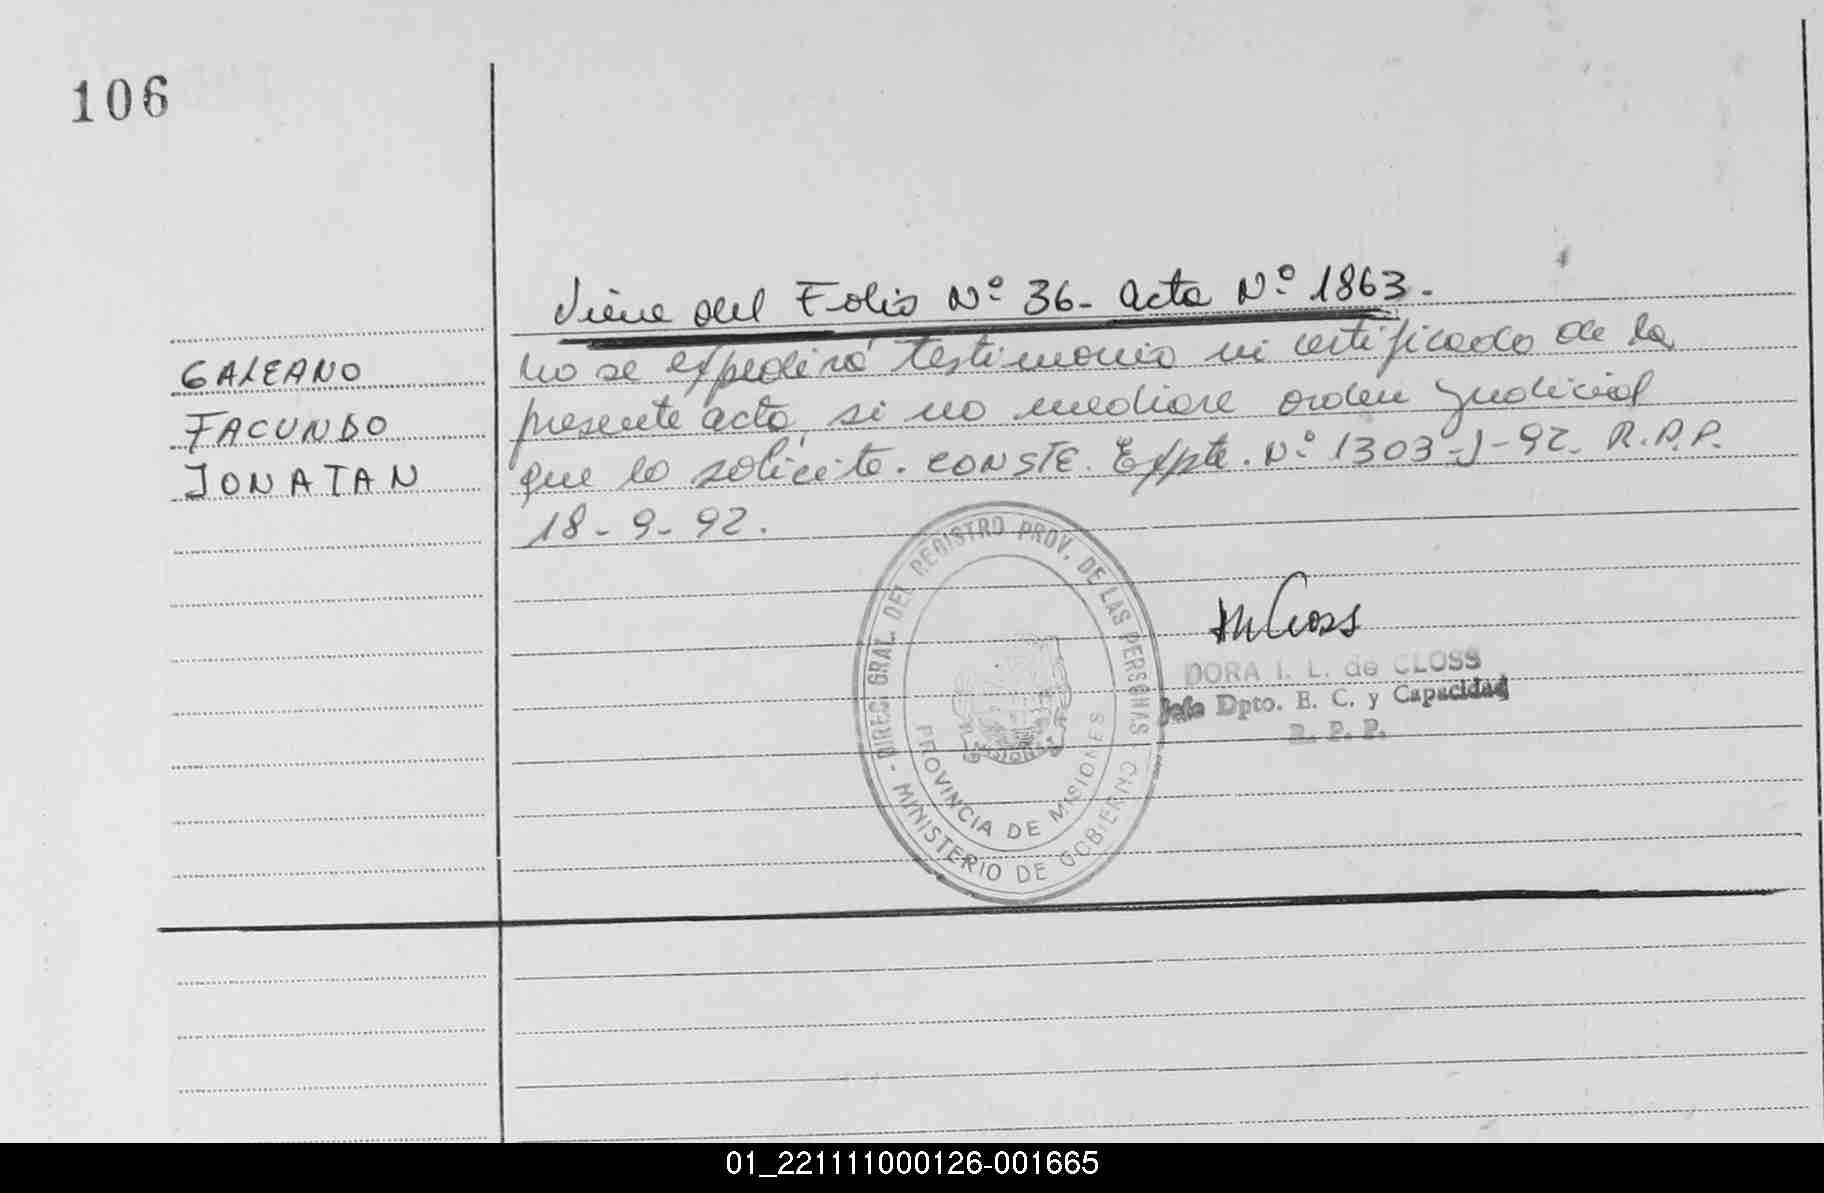 106
Viene del Folio Nº 36- Acta Nº 1863.-
GALEANO
FACUNDO
JONATAN
No se expedirá testimonio ni certificado de la
presente acta, si no mediare orden Judicial
que lo solicite. CONSTE. Expte. Nº 1303-J-92- R.P.P.
18-9-92.
- DIREC. GRAL. DEL REGISTRO PROV. DE LAS PERSONAS -
MINISTERIO DE GOBIERNO
PROVINCIA DE MISIONES
DORA I. L. de CLOSS
Jefe Dpto. E. C. y Capacidad
R. P. P.
01_221111000126-001665